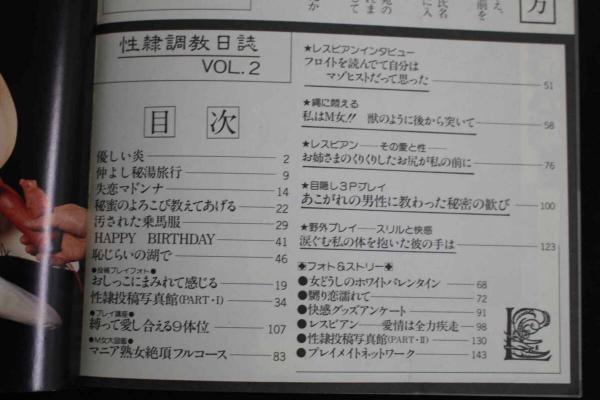 え、
前を
氏名
に入
方
性隷調教日誌
VOL.2
目次
優しい炎 2
仲よし秘湯旅行 9
失恋マドンナ 14
秘蜜のよろこび教えてあげる 22
汚された乗馬服 29
HAPPY BIRTHDAY 41
恥じらいの湖で 46
●投稿プレイフォト●
おしっこにまみれて感じる 19
性隷投稿写真館(PART・I) 34
●プレイ講座●
縛って愛し合える9体位 107
●M女大図鑑●
マニア熟女絶頂フルコース 83
★レスビアンインタビュー
フロイトを読んでて自分は
マゾヒストだって思った 51
★縄に悶える
私はM女!! 獣のように後から突いて 58
★レスビアン――その愛と性――
お姉さまのくりくりしたお尻が私の前に 76
★目隠し3Pプレイ
あこがれの男性に教わった秘密の歓び 100
★野外プレイ――スリルと快感
涙ぐむ私の体を抱いた彼の手は 123
✚フォト&ストリー✚
●女どうしのホワイトバレンタイン 68
●嬲り恋濡れて 72
●快感グッズアンケート 91
●レスビアン――愛情は全力疾走 98
●性隷投稿写真館(PART・II) 130
●プレイメイトネットワーク 143